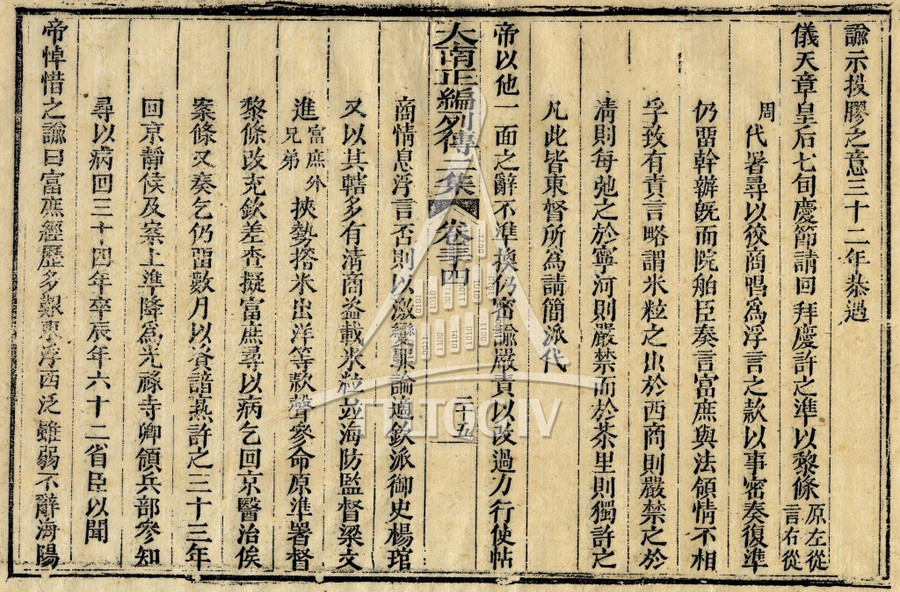 諭示投膠之意三十二年恭遇
儀天章皇后七旬慶節請回拜慶許之準以黎條原左從言右從
周代署尋以狡商唱為浮言之款以事密奏復準
仍畱幹辦既而院舶臣奏言富庶與法領情不相
孚致有責言略謂米粒之出於西商則嚴禁之於
清則每弛之於寧河則嚴禁而於茶里則獨許之
凡此皆東督所為請簡派代
帝以他一面之辭不準換仍密諭嚴責以改過力行使帖
大南正編列傳二集 卷三十四 二十五
商情息浮言否則以激變罪論適欽派御史楊琯
又以其轄多有清商盜載米粒並海防監督梁文
進富庶外兄弟挾勢撘米出洋等款聲參命原準署督
黎條改充欽差查擬富庶尋以病乞回京醫治俟
案條又奏乞仍畱數月以資諳熟許之三十三年
回京靜候及案上準降為光祿寺卿領兵部參知
尋以病回三十四年卒辰年六十二省臣以聞
帝悼惜之諭曰富庶經歷多艱東浮西泛雖弱不辭海陽
TTLTQG IV